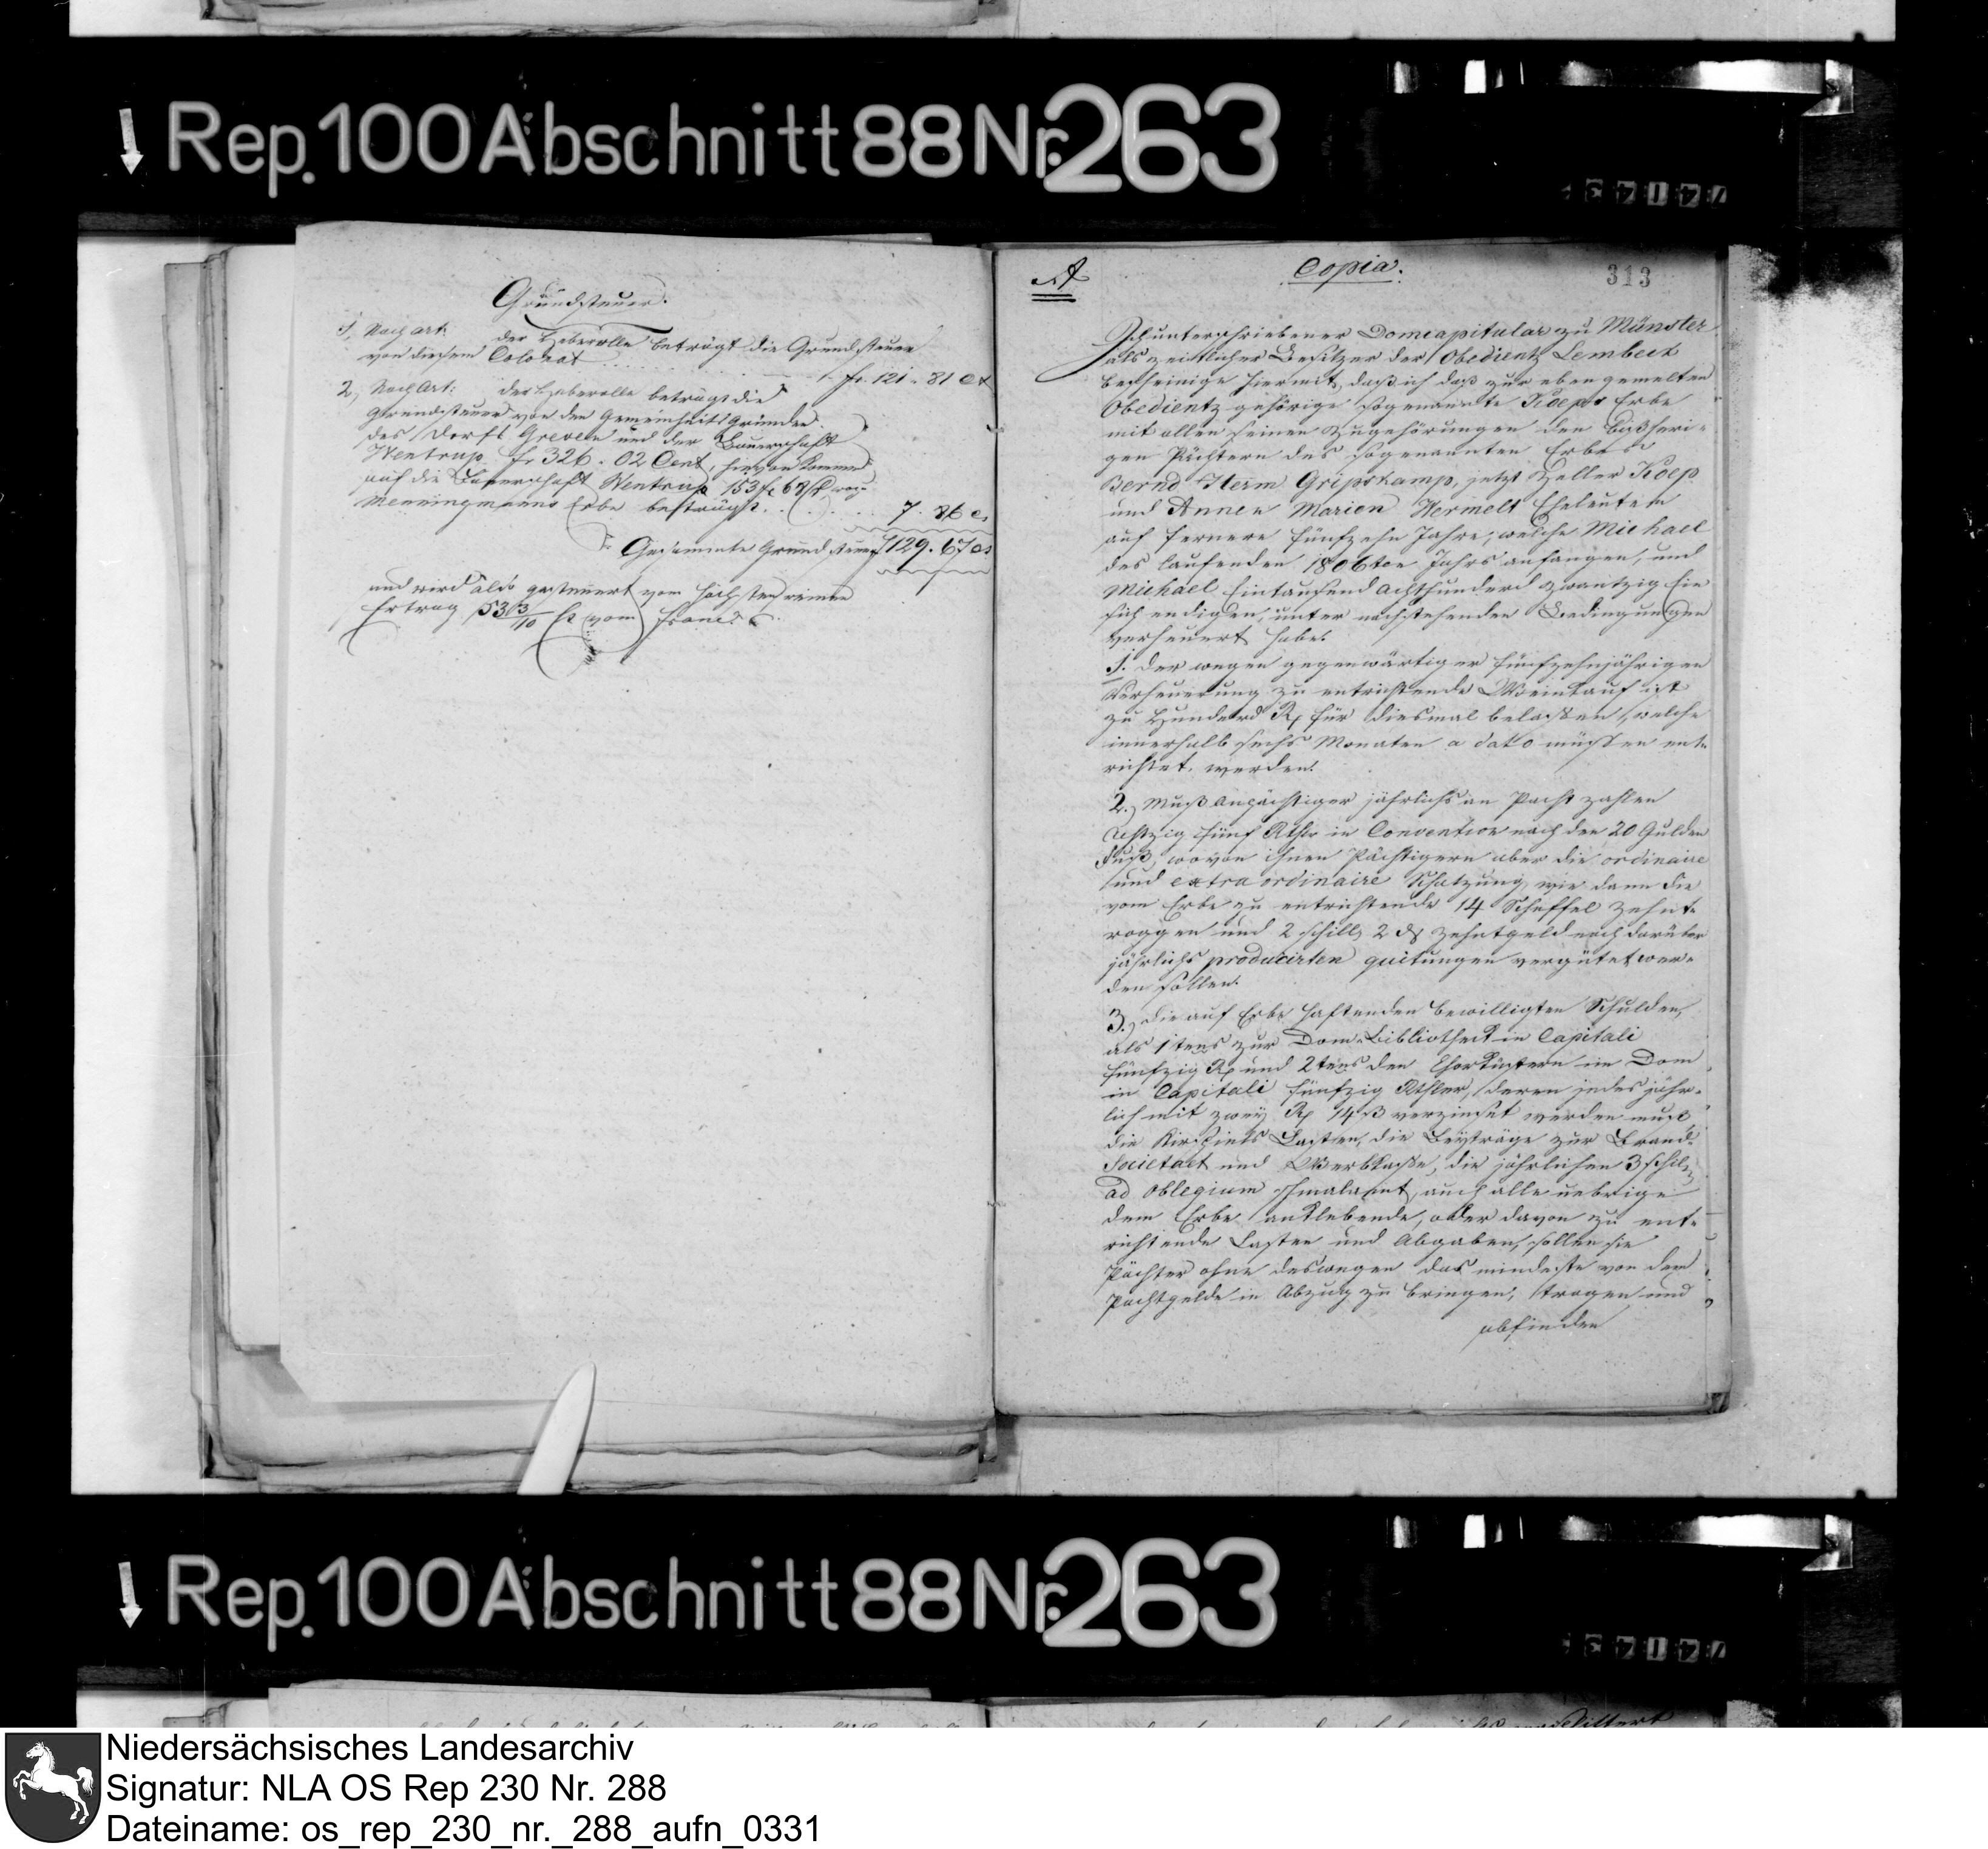 Rep. 100 Abschnitt 88 Nr. 263
Grundsteuer.
1, Nach art: der Heberolle beträgt die Grundsteuer
von diesem Colonat fr. 121. 81 Ct
2, Nach Art: der Heberolle beträgt die
Grundsteuer von den Gemeinheits Gründen
des Dorfs Greven und der Bauerschaft
Wentrup fr 326. 02 Cent, hievon kommen
auf die Bauerschaft Wentrup 153 fr 67
Menningmanns Erbe beträgt 7. 86 c
Gesammte Grundsteuer 129. 67 cs
und wird also gesteuert vom höchsten reinen
Ertrag 53 3/10 vom franc.
A
Copia.
313
Ich unterschriebener Domcapitular zu Münster
als zeitlicher Besitzer der Obedientz Lembeck
bescheinige hiermit, daß ich das zur obengemelten
Obedientz gehörige sogenannte Koeps Erbe
mit allen seinen Zugehörungen den bißheri-
gen Pächtern des sogenannten Erbes
Bernd Herm Gripskamp, jetzt Zeller Koep
und Annen Marien Hermelt Eheleuten
auf fernere fünfzehn Jahre, welche Michael
des laufenden 1806ten Jahrs anfangen, und
Michael Eintausend Achthundert zwantzig Ein
sich endigen, unter nachstehenden Bedingungen
verheuert habe.
1. Der wegen gegenwärtiger fünfzehnjährigen
Verheuerung zu entrichtende Weinkauf ist
zu Hunderd Rp für diesmal belassen, welche
innerhalb sechs Monaten a dato müssen ent-
richtet werden.
2, Muß Anpächtiger jährlichs an Pacht zahlen
Achtzig fünf Rthlr in Convention nach den 20 Gulden
Fuß, wovon ihnen Pächtigern aber die ordinaire
und extraordinaire Schatzung, wie dann die
vom Erbe zu entrichtende 14 Scheffel Zehnt-
roggen und 2 schill, 2 d Zehntgeld nach darüber
jährlichs producirten quitungen vergütet wer-
den sollen.
3, Die auf Erbe haftenden bewilligten Schulden,
als 1tens zur Dom-Bibliotheck in Capitali
fünfzig Rp und 2tens den Chorküstern im Dom
in Capitali fünfzig Rthler, deren jedes jähr-
lich mit zwey Rp 14 ß verzinset werden muß
die Kirchspiels Lasten, die Beyträge zur Brand-
Societaet und Werbkasse, die jährlichen 3 schill
ad oblegium Smalamt, auch alle uebrige
dem Erbe anklebende, oder davon zu ent-
richtende Lasten und Abgaben, sollen sie
Pächter ohne deswegen das mindeste von dem
Pachtgelde in Abzug zu bringen, tragen und
abfinden
Rep. 100 Abschnitt 88 Nr. 263
Niedersächsisches Landesarchiv
Signatur: NLA OS Rep 230 Nr. 288
Dateiname: os_rep_230_nr._288_aufn_0331